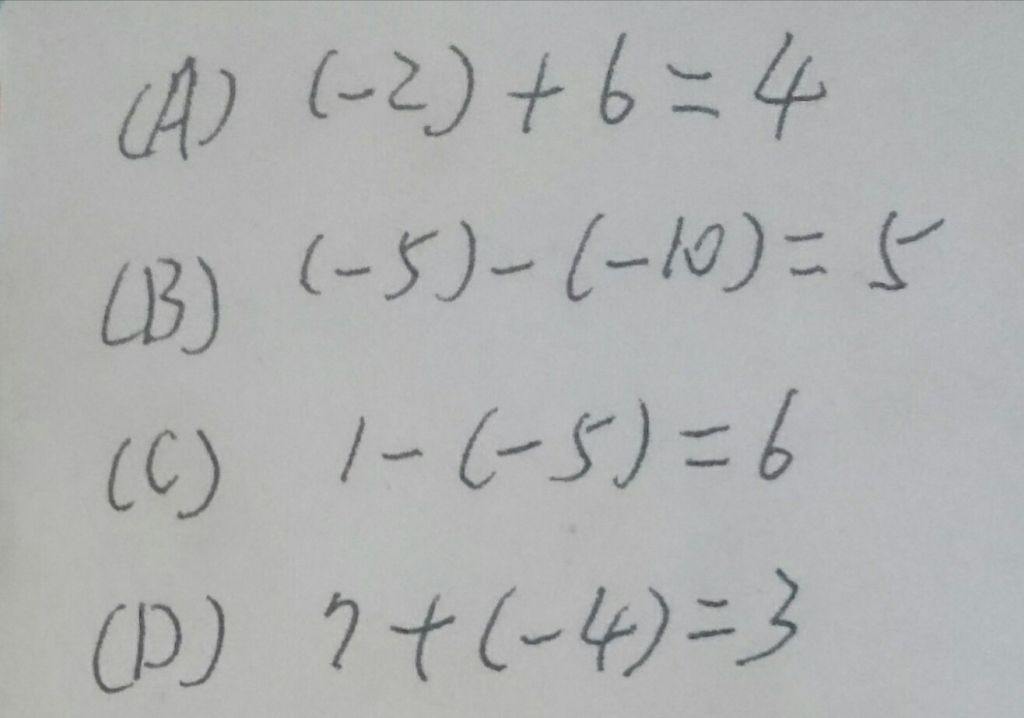 (A) (-2) + 6 = 4
(B) (-5) - (-10) = 5
(C) 1 - (-5) = 6
(D) 7 + (-4) = 3